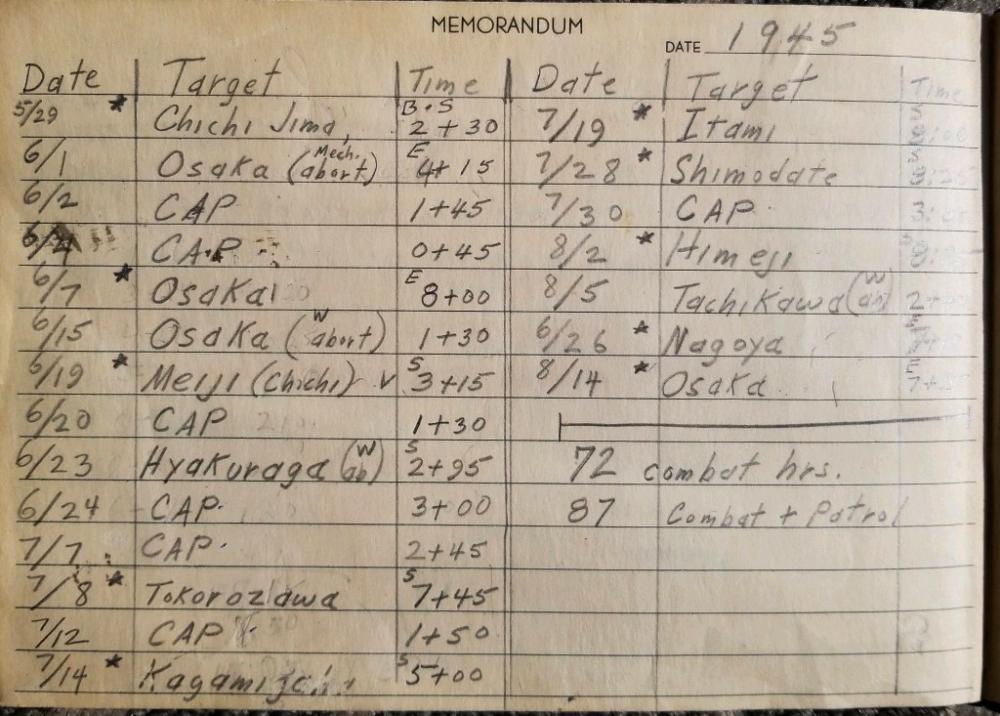 MEMORANDUM
DATE 1945
Date Target Time
5/29 * Chichi Jima, B.S 2+30
6/1 Osaka (Mech. abort) E 4+15
6/2 CAP 1+45
6/4 CAP 0+45
6/7 * Osaka E 8+00
6/15 Osaka (W abort) 1+30
6/19 * Meiji (Chichi) v S 3+15
6/20 CAP 1+30
6/23 Hyakuraga (W ab) S 2+95
6/24 CAP. 3+00
7/7 CAP. 2+45
7/8 * Tokorozawa S 7+45
7/12 CAP 1+50
7/14 * S 5+00
Date Target Time
7/19 * Itami S 8:00
7/28 * Shimodate S 8:25
7/30 CAP 3:
8/2 * Himeji S 8:
8/5 Tachikawa (W ab) 2+
6/26 * Nagoya
8/14 * Osaka E 7+
72 combat hrs.
87 Combat + Patrol